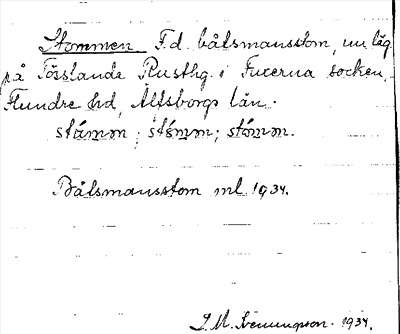 Stommen. F.d. båtsmansstom, nu läg.
på Torslanda Rusthg. i Fuxerna socken,
Flundre hd, Älfsborgs län.
stámm; stómm; stómm.
Båtsmansstom ml 1934.
J. M. Svenungson. 1934.